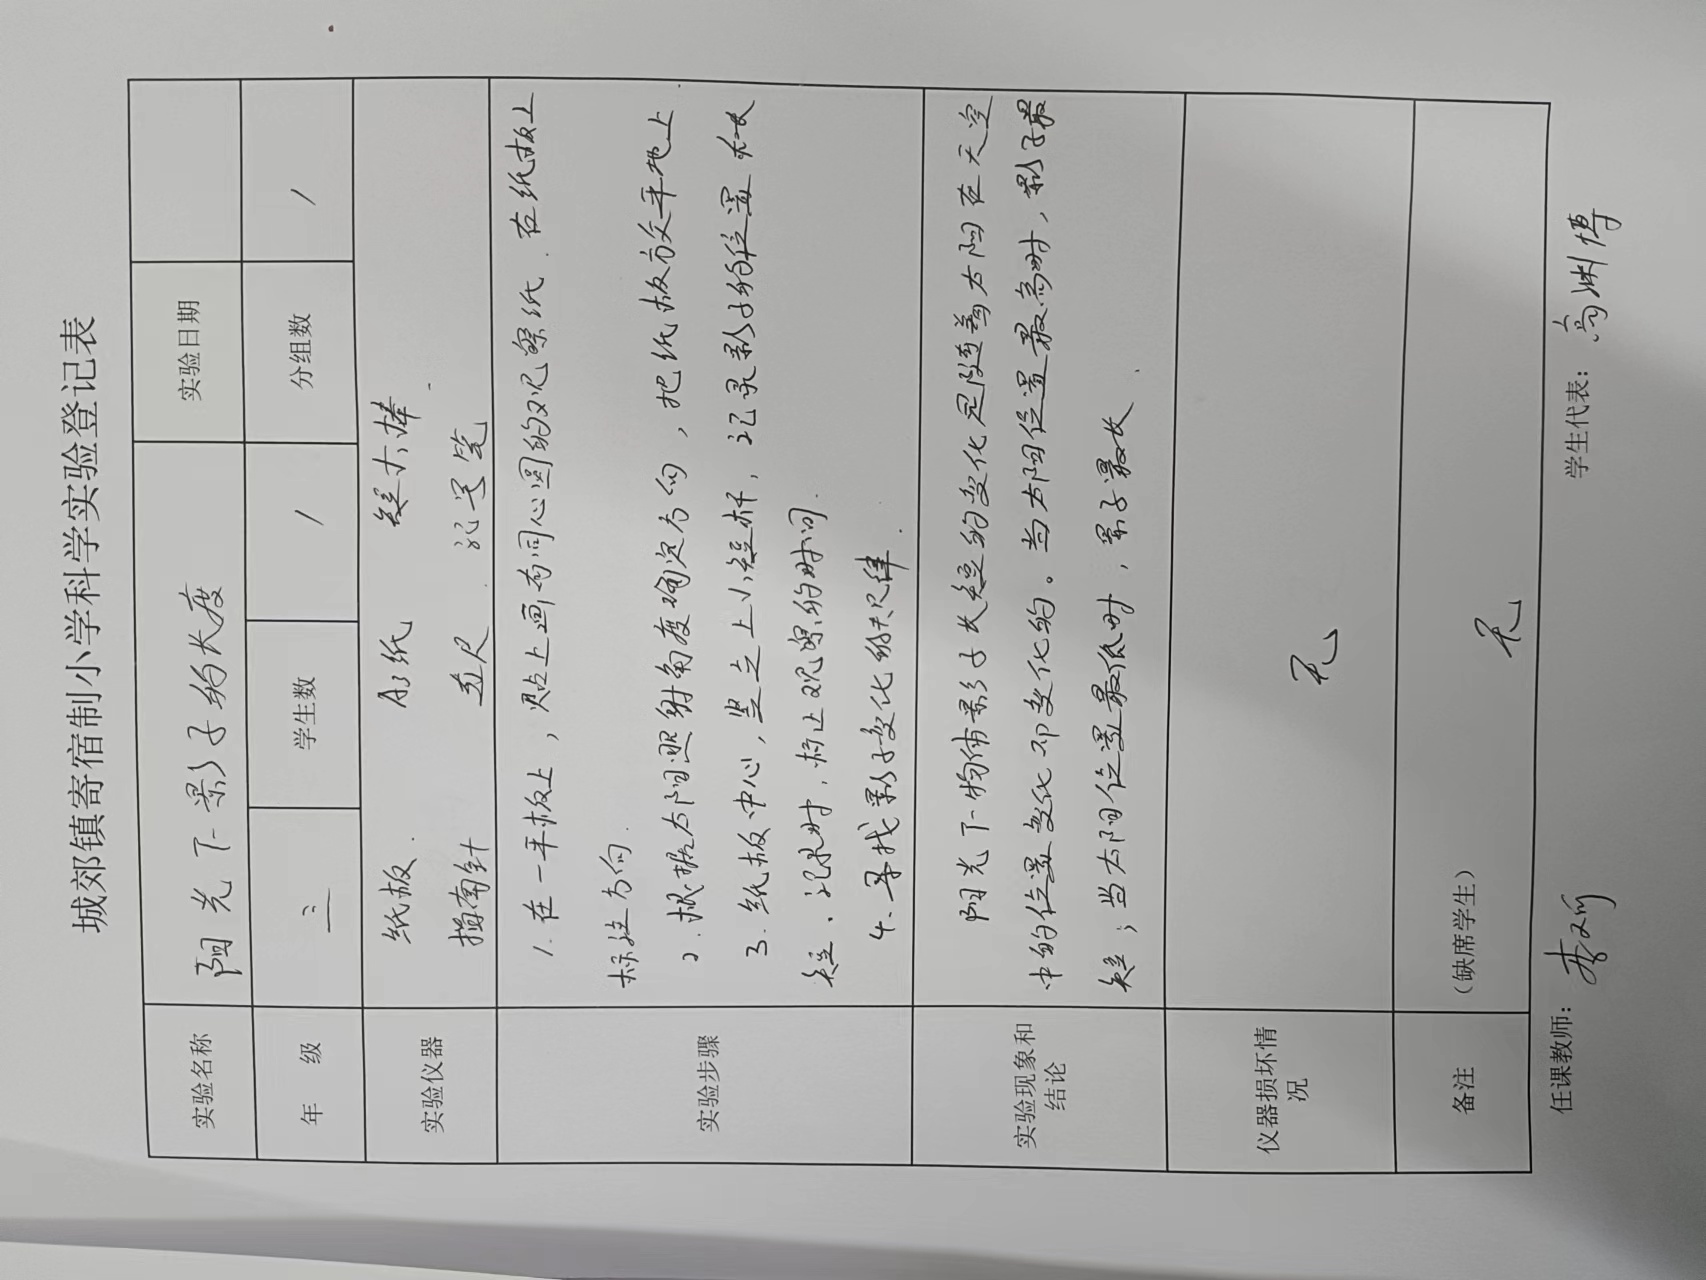 城郊镇寄宿制小学科学实验登记表
实验名称 阳光下影子的长度 实验日期
年 级 三 学生数 / 分组数 /
实验仪器 纸板. A3纸 短木棒
指南针 直尺. 记号笔
实验步骤 1.在一平板上,贴上画有同心圆的观察纸.在纸板上
标注方向.
2.根据太阳照射角度确定方向,把纸板放平地上
3.纸板中心,竖立上小短杆,记录影子的位置和长
短、记录时,标上观察的时间.
4、寻找影子变化的规律.
实验现象和 阳光下物体影子长短的变化是随着太阳在天空
结论 中的位置变化而变化的。当太阳位置最高时,影子最
短;当太阳位置最低时,影子最长.
仪器损坏情 无
况
备注 (缺席学生) 无
任课教师: 李 学生代表: 高渊博